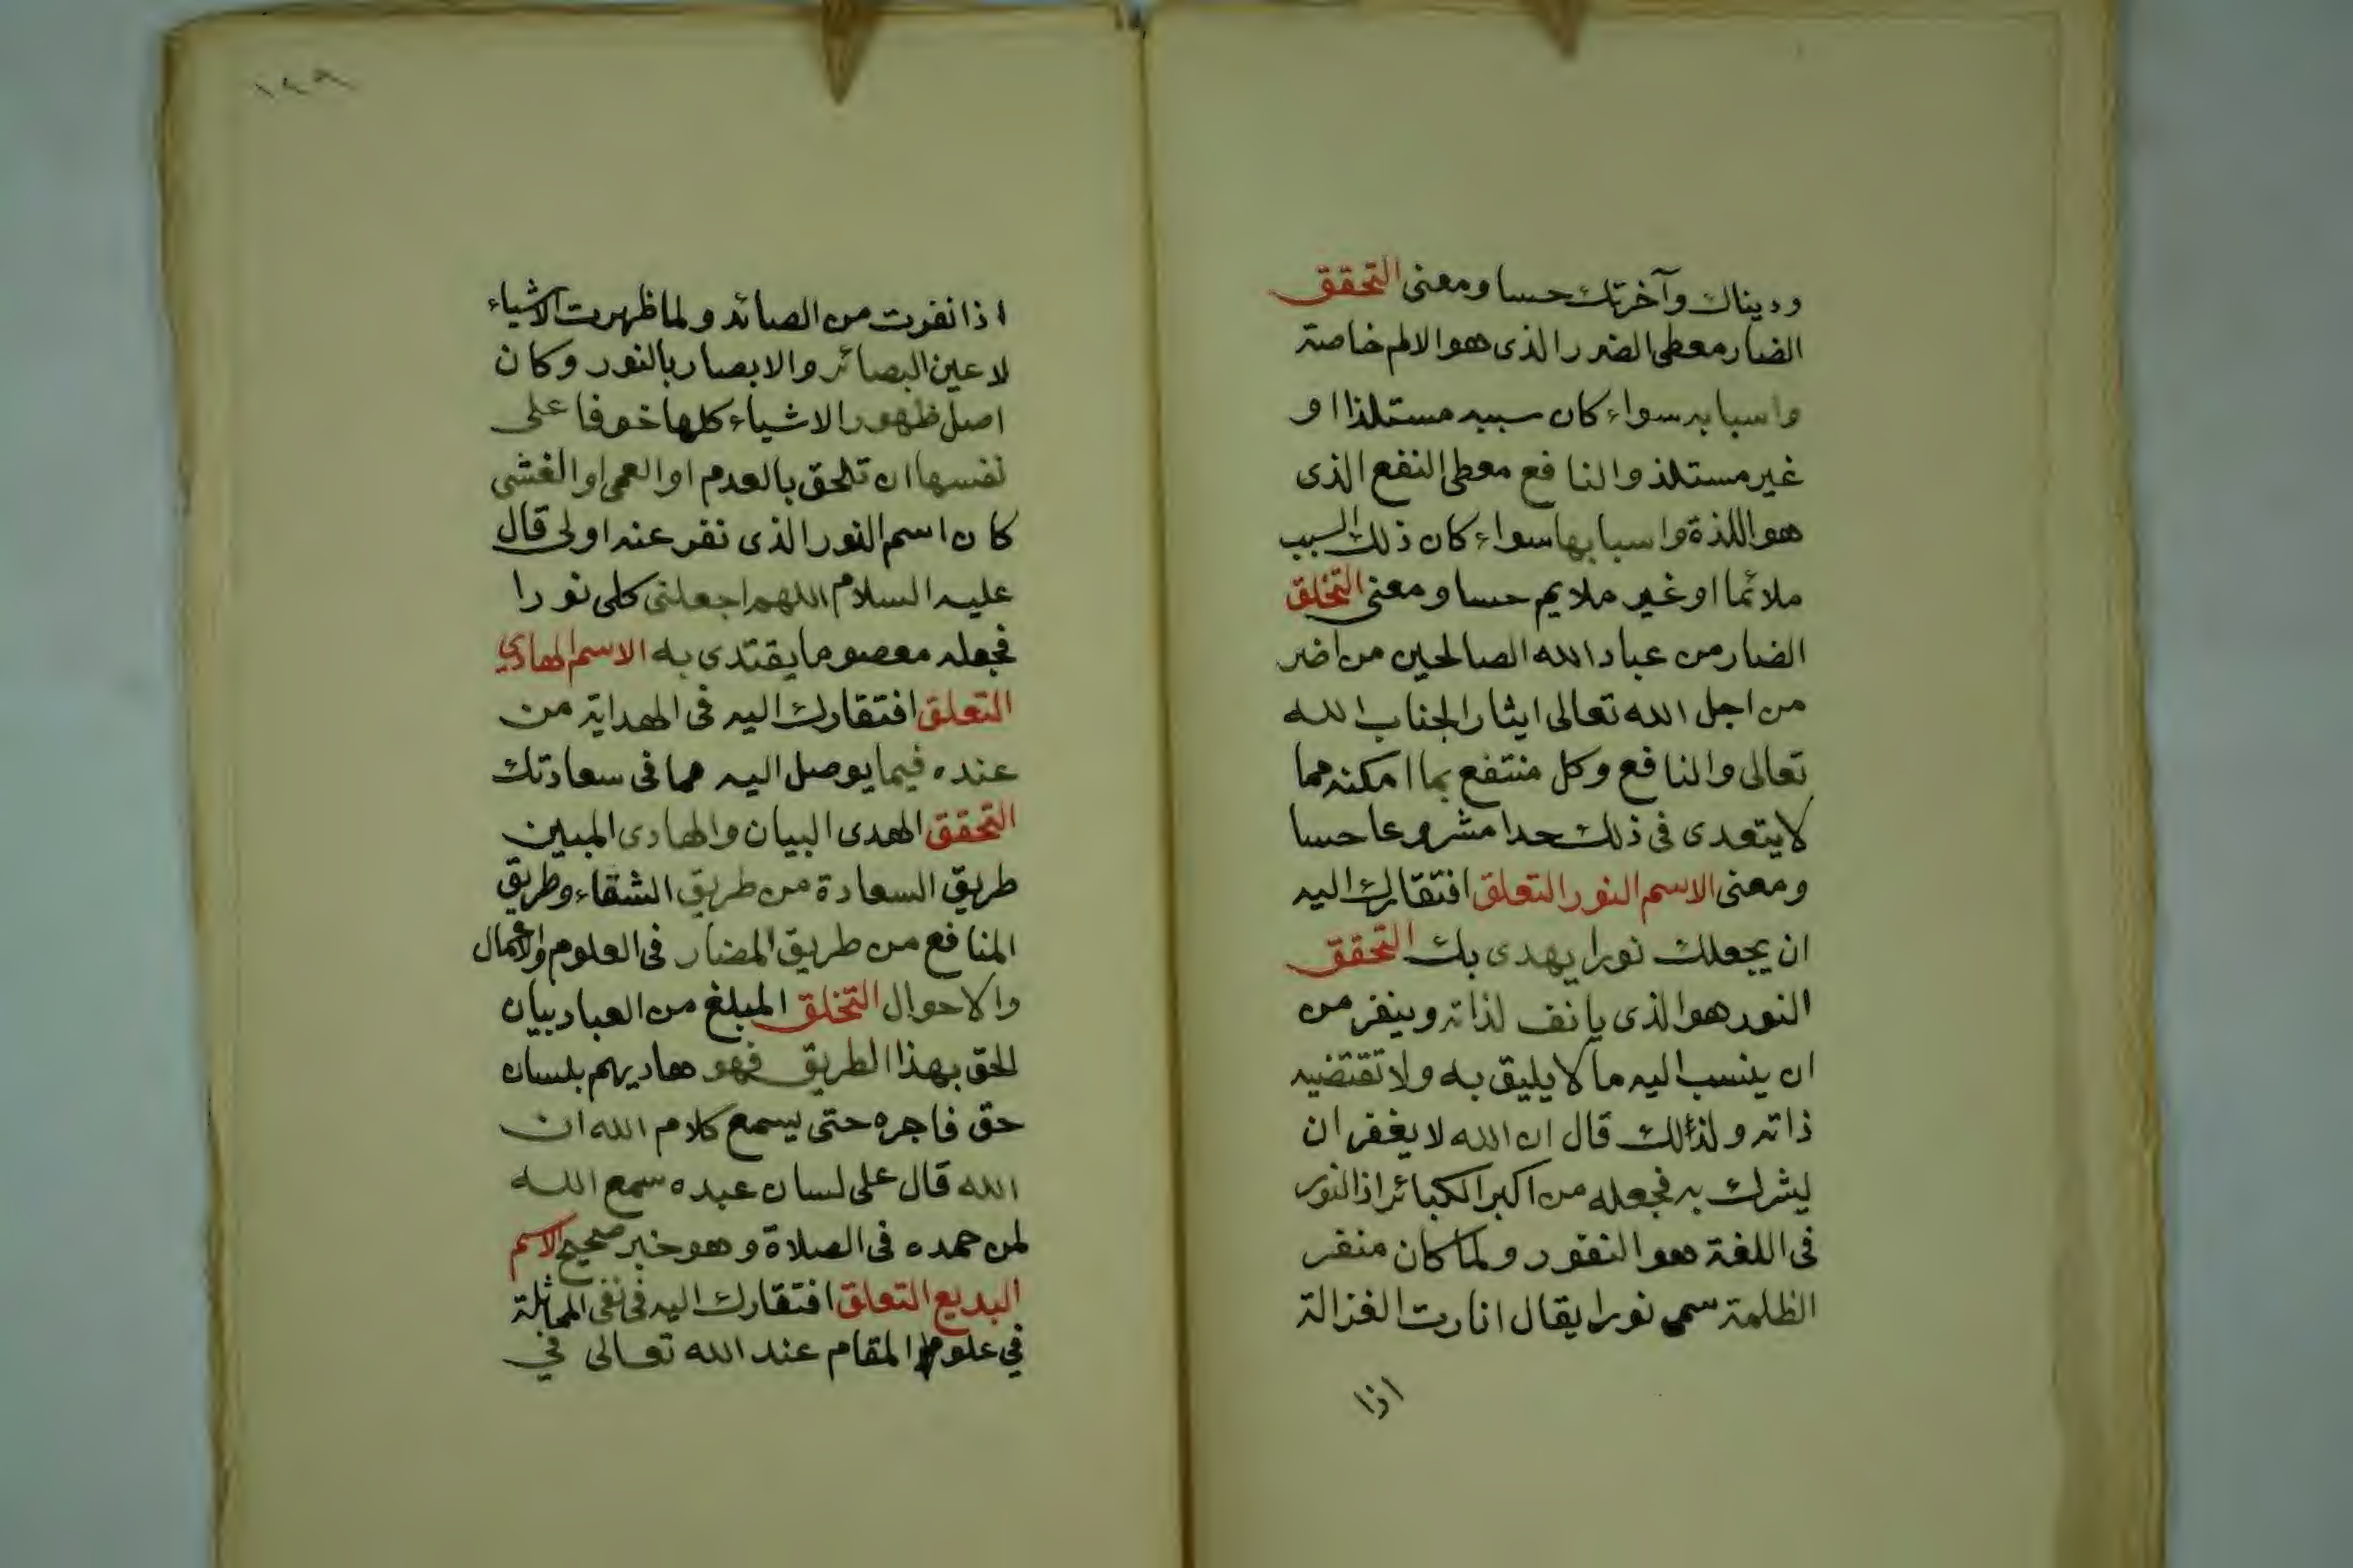 وديناك وآخرتك حسا ومعنى التحقق
الضار معطى الضرر الذى هو الالم خاصة
واسبابه سواء كان سببه مستلذا او
غير مستلذ والنافع معطى النفع الذى
هو اللذة واسبابها سواء كان ذلك السبب
ملائما او غير ملايم حسا ومعنى التخلق
الضار من عباد الله الصالحين من اضر
من اجل الله تعالى ايثارا لجناب الله
تعالى والنافع وكل منتفع بما امكنه مما
لا يتعدى فى ذلك حدا مشروعا حسا
ومعنى الاسم النور التعلق افتقارك اليه
ان يجعلك نورا يهدى بك التحقق
النور هو الذى يانف لذاته وينفر من
ان ينسب اليه ما لا يليق به ولا تقتضيه
ذاته ولذلك قال ان الله لا يغفر ان
يشرك به فجعله من اكبر الكبائر اذ النور
فى اللغة هو النفور ولما كان منفر
الظلمة سمى نورا يقال انارت الغزالة
اذا
١٤٩
اذا نفرت من الصائد ولما ظهرت الاشياء
لاعين البصائر والابصار بالنور وكان
اصل ظهور الاشياء كلها خوفا على
نفسها ان تلحق بالعدم او العمى او الغشى
كان اسم النور الذى نفر عنه اولى قال
عليه السلام اللهم اجعلنى كلى نورا
فجعله معصوما يقتدى به الاسم الهادي
التعلق افتقارك اليه فى الهداية من
عنده فيما يوصل اليه مما فى سعادتك
التحقق الهدى البيان والهادى المبين
طريق السعادة من طريق الشقاء وطريق
المنافع من طريق المضار فى العلوم والاعمال
والاحوال التخلق المبلغ من العباد بيان
الحق بهذا الطريق فهو هاديهم بلسان
حق فاجره حتى يسمع كلام الله ان
الله قال على لسان عبده سمع الله
لمن حمده فى الصلاة وهو خبر صحيح الاسم
البديع التعلق افتقارك اليه فى نفى المماثلة
في علو المقام عند الله تعالى في